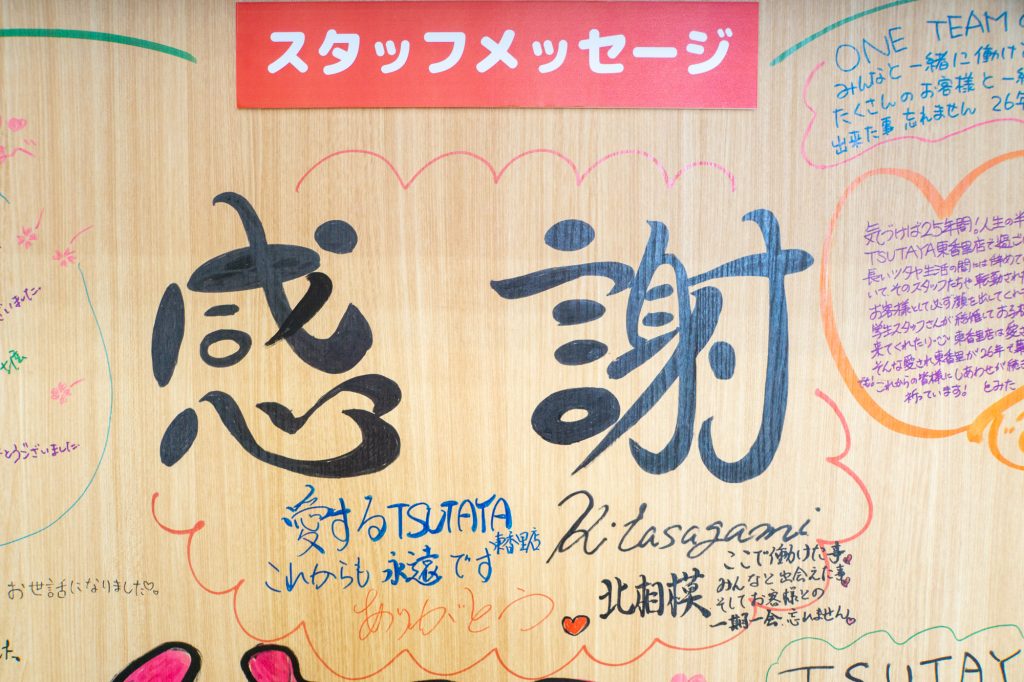 スタッフメッセージ
ONE TEAM
みんなと一緒に働け
たくさんのお客様と一緒
出来た事 忘れません 26年
感謝
気づけば25年間!人生の半
TSUTAYA東香里店で過ご
長いツタヤ生活の間には辞めて
いてそのスタッフたちや転勤され
お客様として必ず顔を出してくれ
学生スタッフさんが結婚してお子様
来てくれたり 東香里店は愛
そんな愛され東香里が26年で幕
これからの皆様にしあわせが続き
祈っています! とみた
ざいました.
とうございました
愛するTSUTAYA
東香里店
これからも 永遠です
ありがとう
Kitasagami
北相模
ここで働けた事
みんなと出会えた事
そしてお客様との
一期一会.忘れません
お世話になりました
た、
TSUTAY